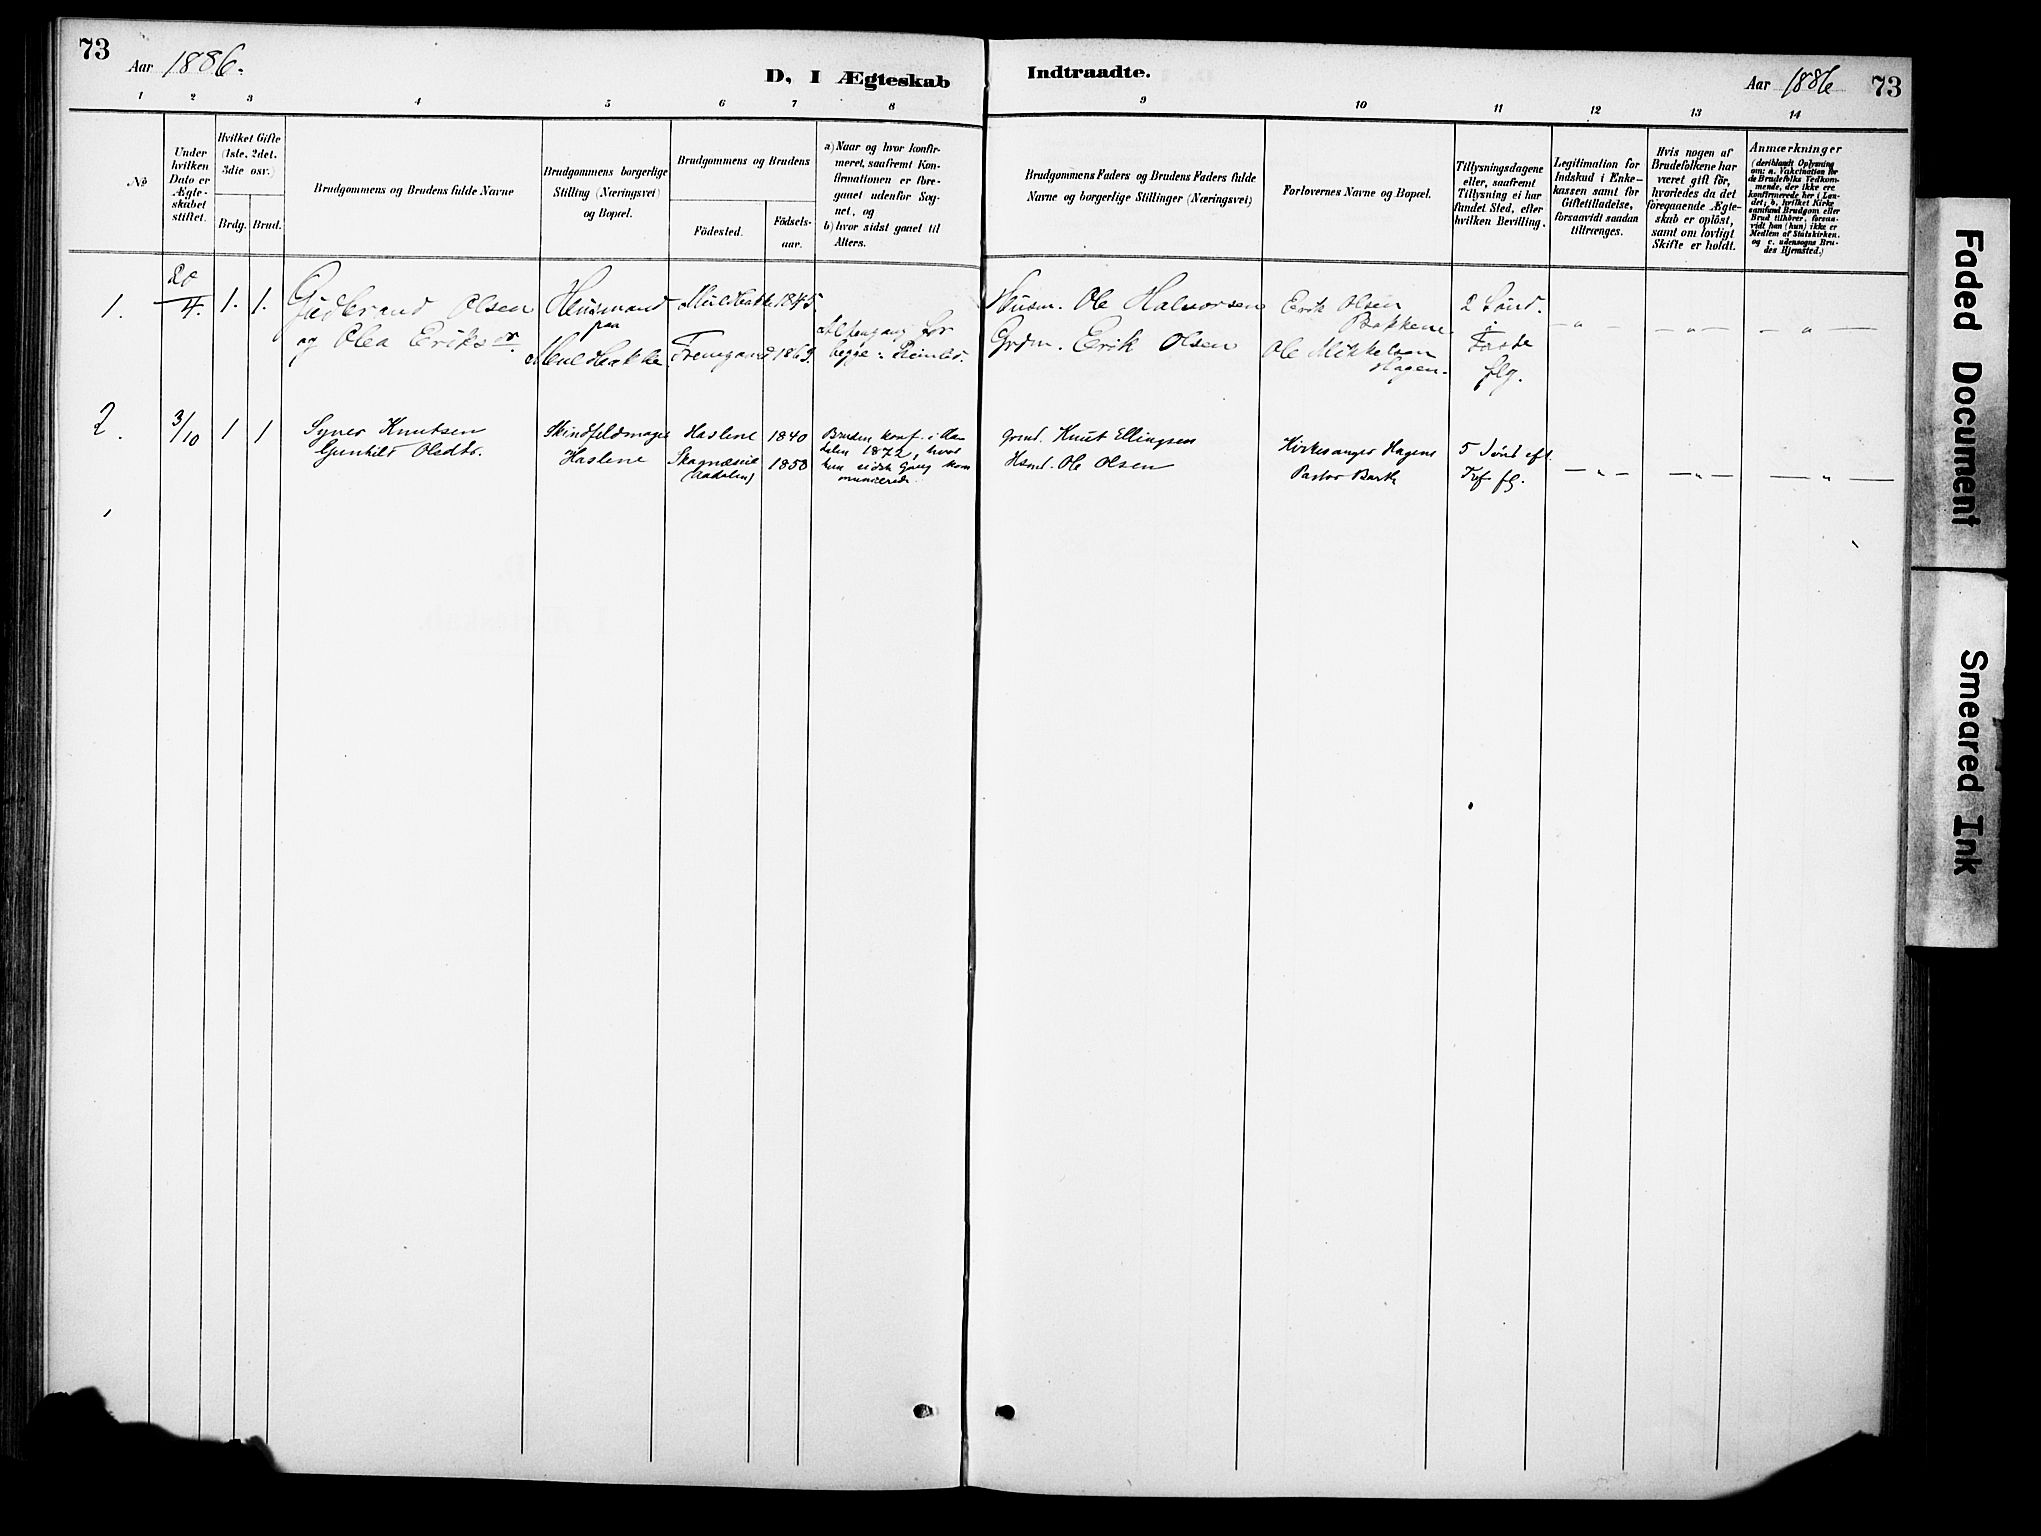 73
Aar 1886.
D, I Ægteskab
Indtraadte.
Aar 1886
73
1 2 3 4 5 6 7 8
9 10 11 12 13 14
No
Under hvilken Dato er Ægte-skabet stiftet.
Hvilket Gifte (1ste, 2det, 3die osv.)
Brdg. Brud.
Brudgommens og Brudens fulde Navne
Brudgommens borgerlige Stilling (Næringsvei) og Bopæl.
Brudgommens og Brudens
Födested.
Födsels-aar.
a) Naar og hvor konfir-meret, saafremt Kon-firmationen er fore-gaaet udenfor Sog-net, og
b) hvor sidst gaaet til Alters.
Brudgommens Faders og Brudens Faders fulde Navne og borgerlige Stillinger (Næringsvei)
Forlovernes Navne og Bopæl.
Tillysningsdagene eller, saafremt Tillysning ei har fundet Sted, efter hvilken Bevilling.
Legitimation for Indskud i Enke-kassen samt for Giftetilladelse, forsaavidt saadan tiltrænges.
Hvis nogen af Brudefolkene har været gift för, hvorledes da det foregaaende Ægte-skab er oplöst, samt om lovligt Skifte er holdt.
Anmærkninger
(deriblandt Oplysning om: a. Vakcination for de Brudefolks Vedkom-mende, der ikke ere konfirmerede her i Lan-det; b. hvilket Kirke-samfund Brudgom eller Brud tilhörer, forsaa-vidt han (hun) ikke er Medlem af Statskirken, og c. udensogns Bru-des Hjemsted.)
1. 20/4. 1. 1. Gudbrand Olsen
og Olea Eriksdr.
Husmand
paa
1845.
1863.
begge
Husm. Ole Halvorsen
Grdm. Erik Olsen
Erik Olsen
Bakkene
Ole Mikkelsen
Hagen.
2 Sönd.
i
Faste
flg.
— " — — " — — " —
2. 3/10 1 1 Syver Knutsen
Gunhild Olsdtr.
Skindfeldmager
Haslene
Haslene 1840
1850
(Aadalen)
Bruden konf. i Aa-
dalen 1872, hvor
hun sidste Gang kom
municerede.
Grmd. Knut Ellingsen
Hsmd. Ole Olsen
Kirkesanger Hagene
Pastor Barth
5 Sönd eft.
Tref flg.
— " — — " — — " —
Faded Document
Smeared Ink